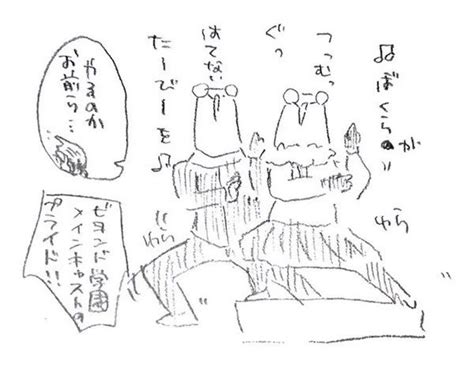 ♫ぼくらのが
つつむっ
ぐっ
はてない
たーびーを♪
ゆら
ゆら
やるのか
お前ら…
ビヨンド学園
メインキャストの
プライド!!